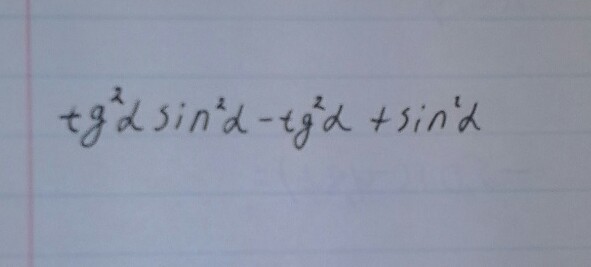 tg²α sin²α - tg²α + sin²α